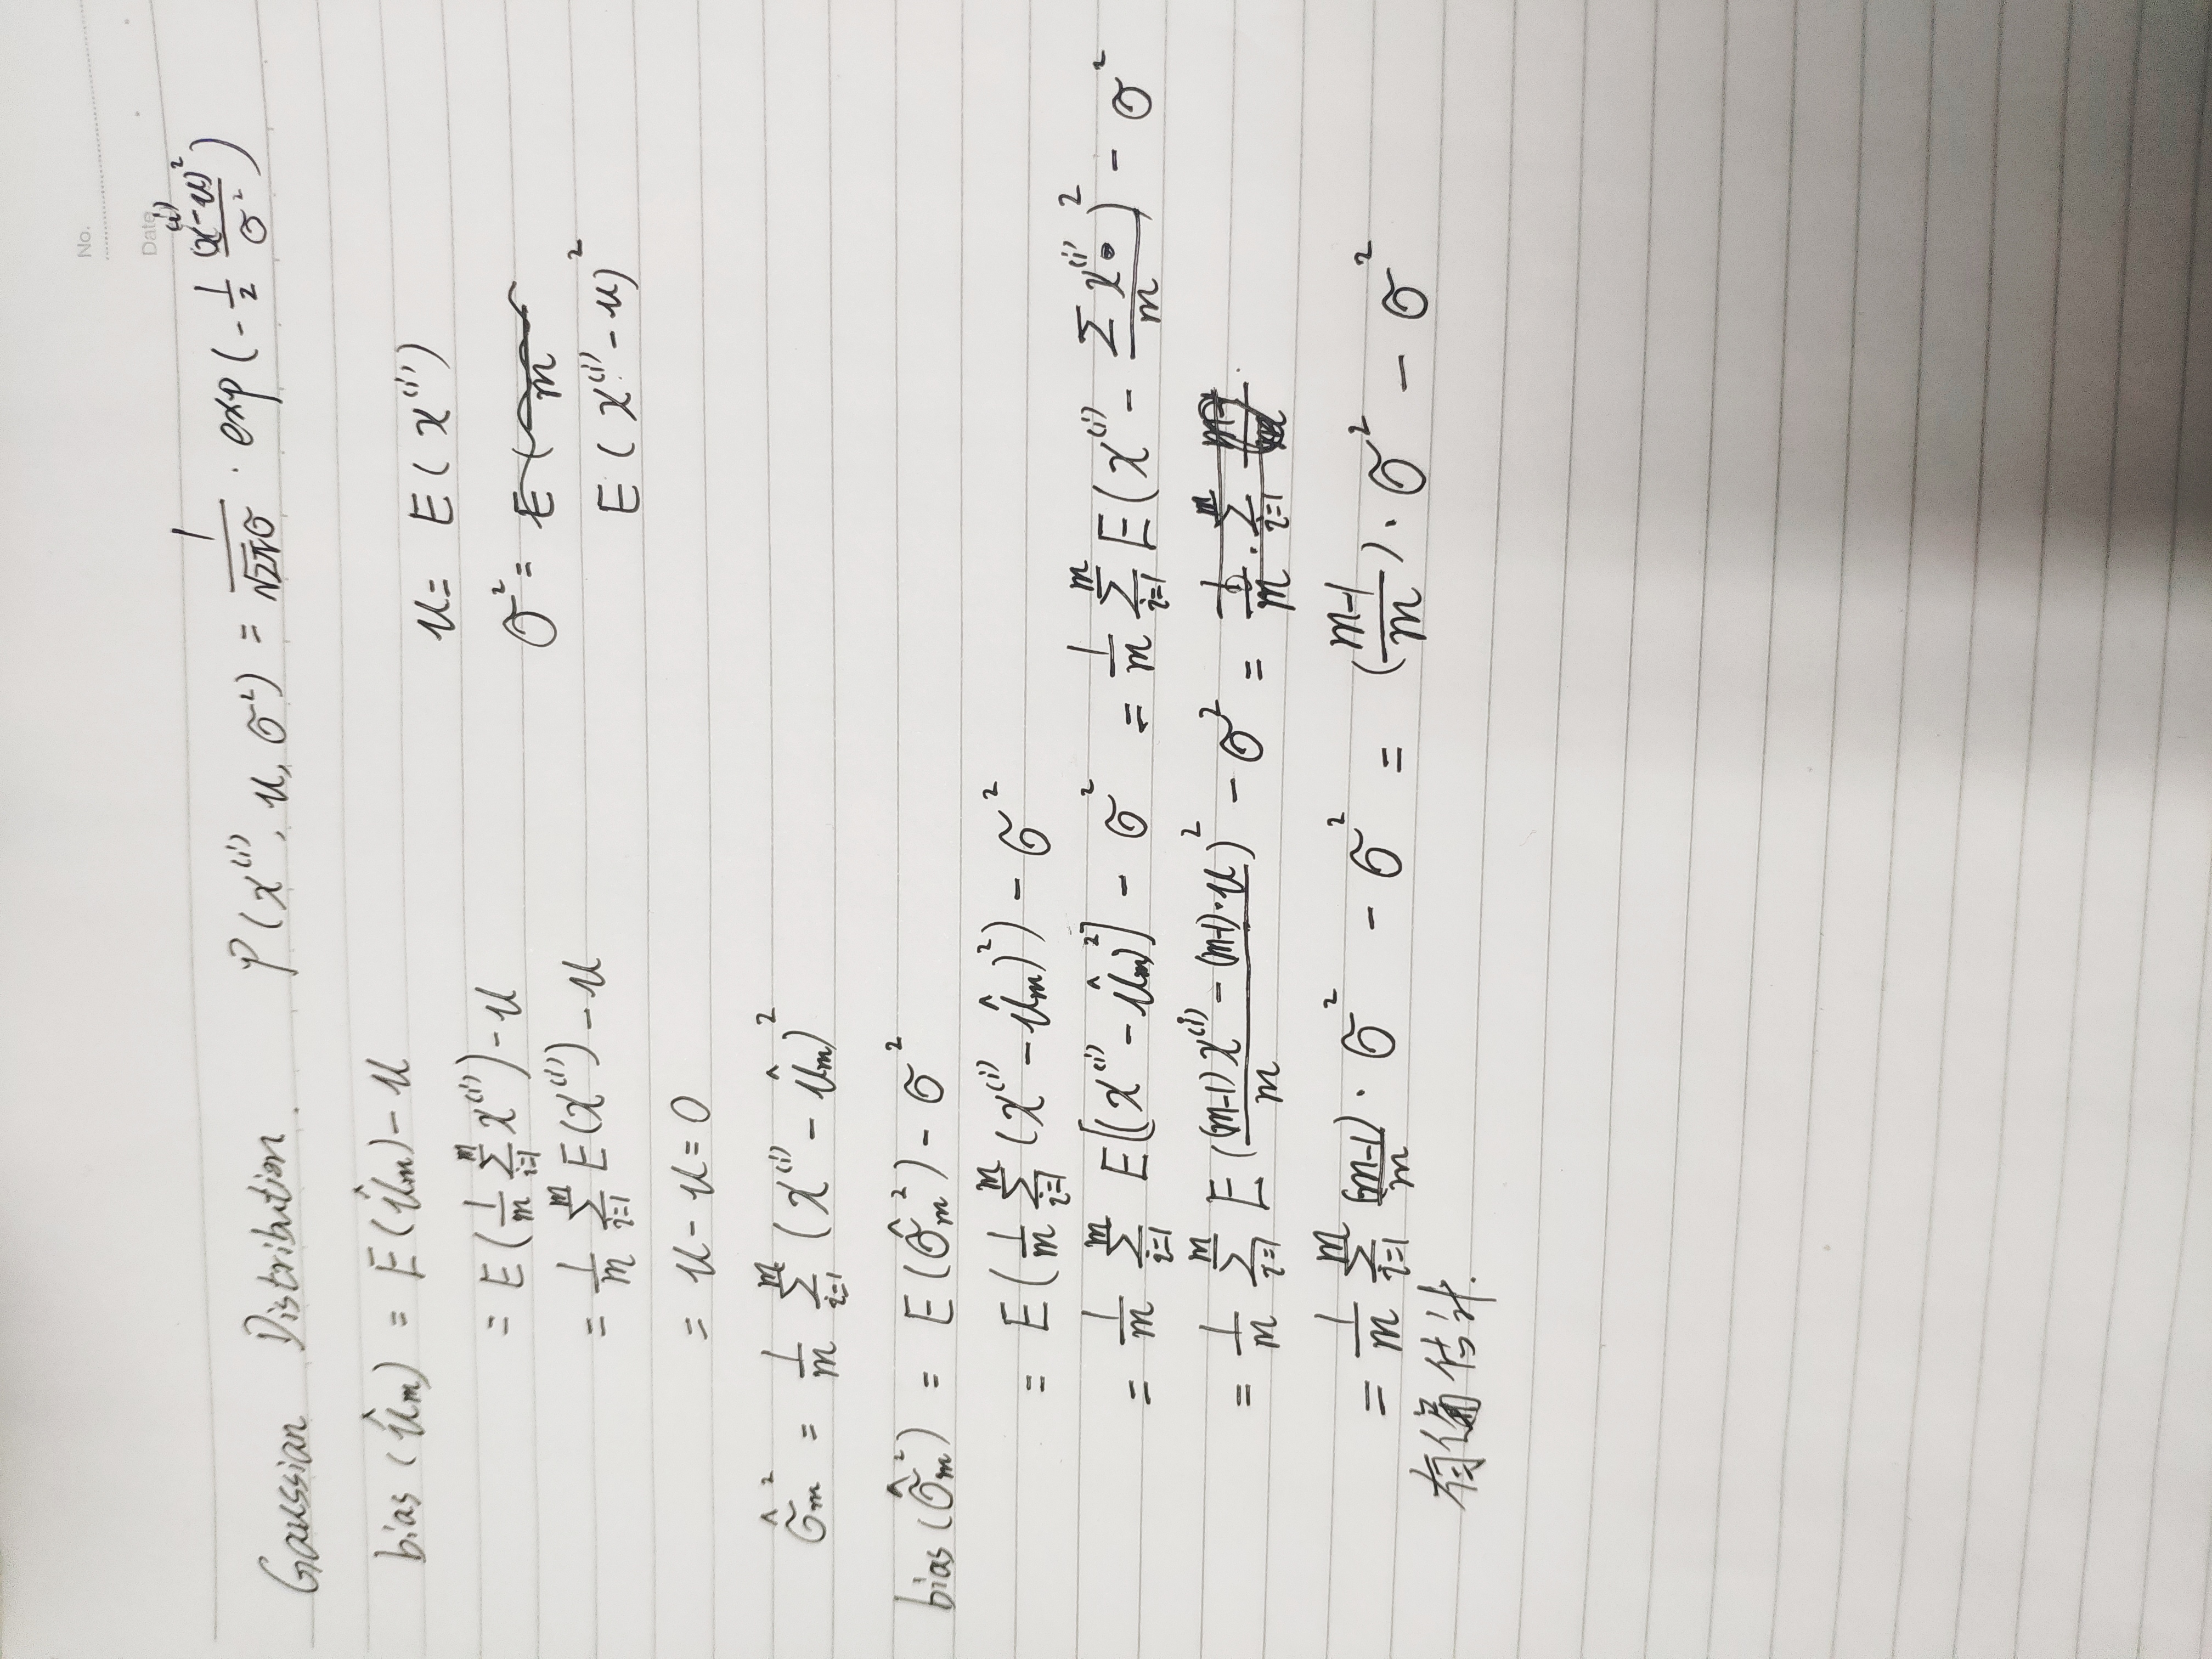 No.
Date
Gaussian Distribution. P(x⁽ⁱ⁾, u, σ²) = 1/(√2π σ) · exp(-1/2 (x⁽ⁱ⁾-u)²/σ²)
bias(û_m) = E(û_m) - u
u = E(x⁽ⁱ⁾)
= E(1/m Σ_{i=1}^{m} x⁽ⁱ⁾) - u
σ² = E( m
= 1/m Σ_{i=1}^{m} E(x⁽ⁱ⁾) - u
E(x⁽ⁱ⁾ - u)²
= u - u = 0
σ̂_m² = 1/m Σ_{i=1}^{m} (x⁽ⁱ⁾ - û_m)²
bias(σ̂_m²) = E(σ̂_m²) - σ²
= E(1/m Σ_{i=1}^{m} (x⁽ⁱ⁾ - û_m)²) - σ²
= 1/m Σ_{i=1}^{m} E[(x⁽ⁱ⁾ - û_m)²] - σ² = 1/m Σ_{i=1}^{m} E(x⁽ⁱ⁾ - Σx⁽ⁱ⁾/m)² - σ²
= 1/m Σ_{i=1}^{m} E(((m-1)x⁽ⁱ⁾ - (m-1)·u)/m)² - σ² = 1/m · Σ_{i=1}^{m}
= 1/m Σ_{i=1}^{m} (m-1)/m · σ² - σ² = ((m-1)/m) · σ² - σ²
有偏估计.